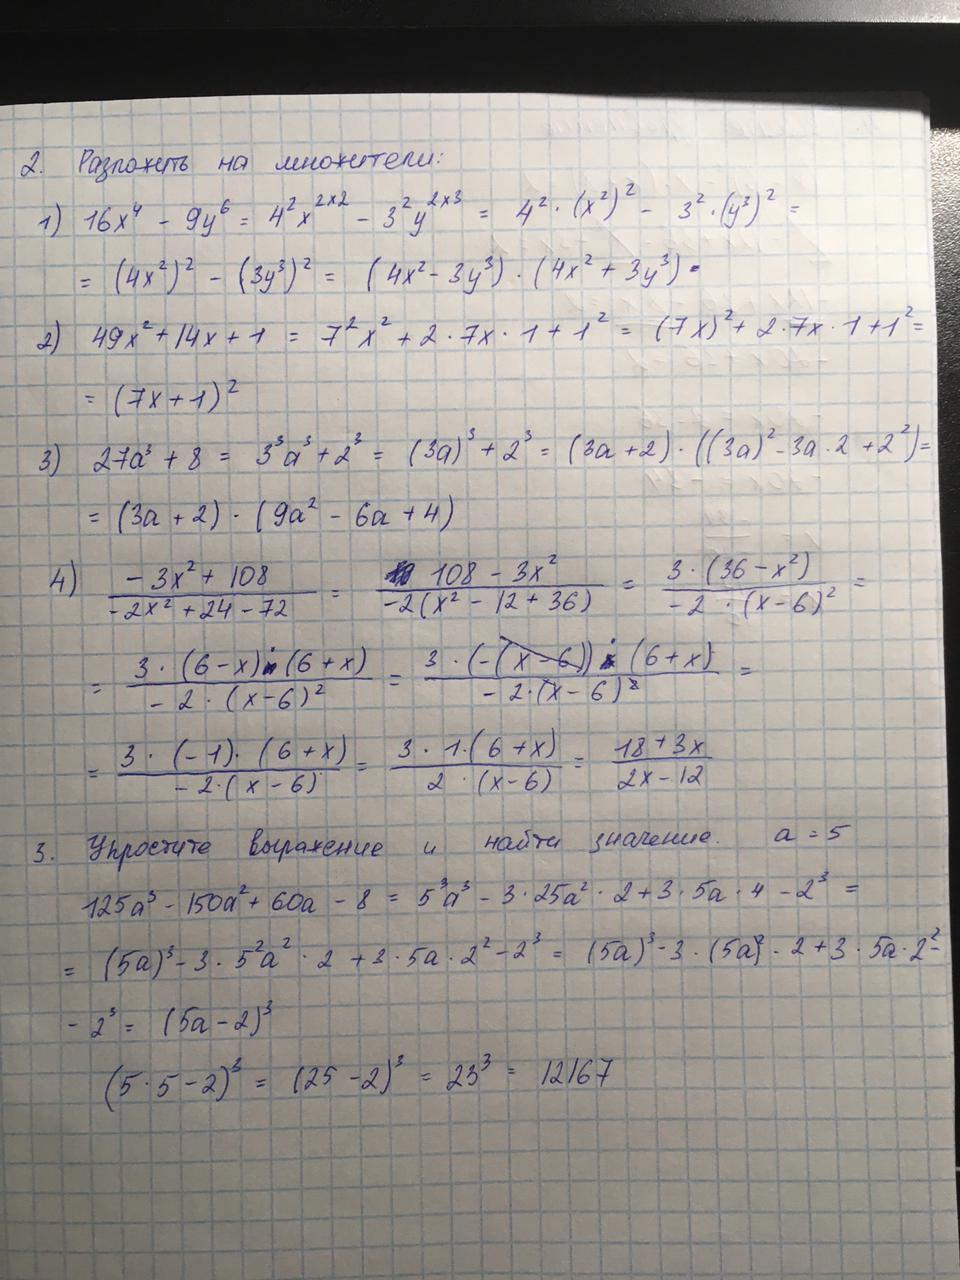 2. Разложить на множители:
1) 16x⁴ - 9y⁶ = 4²x²ˣ² - 3²y²ˣ³ = 4² · (x²)² - 3² · (y³)² =
= (4x²)² - (3y³)² = (4x² - 3y³) · (4x² + 3y³)
2) 49x² + 14x + 1 = 7²x² + 2 · 7x · 1 + 1² = (7x)² + 2 · 7x · 1 + 1² =
= (7x + 1)²
3) 27a³ + 8 = 3³a³ + 2³ = (3a)³ + 2³ = (3a + 2) · ((3a)² - 3a · 2 + 2²) =
= (3a + 2) · (9a² - 6a + 4)
4) (-3x² + 108)/(-2x² + 24 - 72) = (108 - 3x²)/(-2(x² - 12 + 36)) = (3 · (36 - x²))/(-2 · (x - 6)²) =
= (3 · (6 - x) · (6 + x))/(-2 · (x - 6)²) = (3 · (-(x - 6)) · (6 + x))/(-2 · (x - 6)²) =
= (3 · (-1) · (6 + x))/(-2 · (x - 6)) = (3 · 1 · (6 + x))/(2 · (x - 6)) = (18 + 3x)/(2x - 12)
3. Упростите выражение и найти значение. a = 5
125a³ - 150a² + 60a - 8 = 5³a³ - 3 · 25a² · 2 + 3 · 5a · 4 - 2³ =
= (5a)³ - 3 · 5²a² · 2 + 3 · 5a · 2² - 2³ = (5a)³ - 3 · (5a)² · 2 + 3 · 5a · 2² -
- 2³ = (5a - 2)³
(5 · 5 - 2)³ = (25 - 2)³ = 23³ = 12167